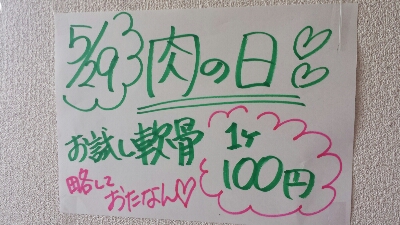 5/29 肉の日♡♡
お試し軟骨 1ヶ
100円
略して
おためなん♡